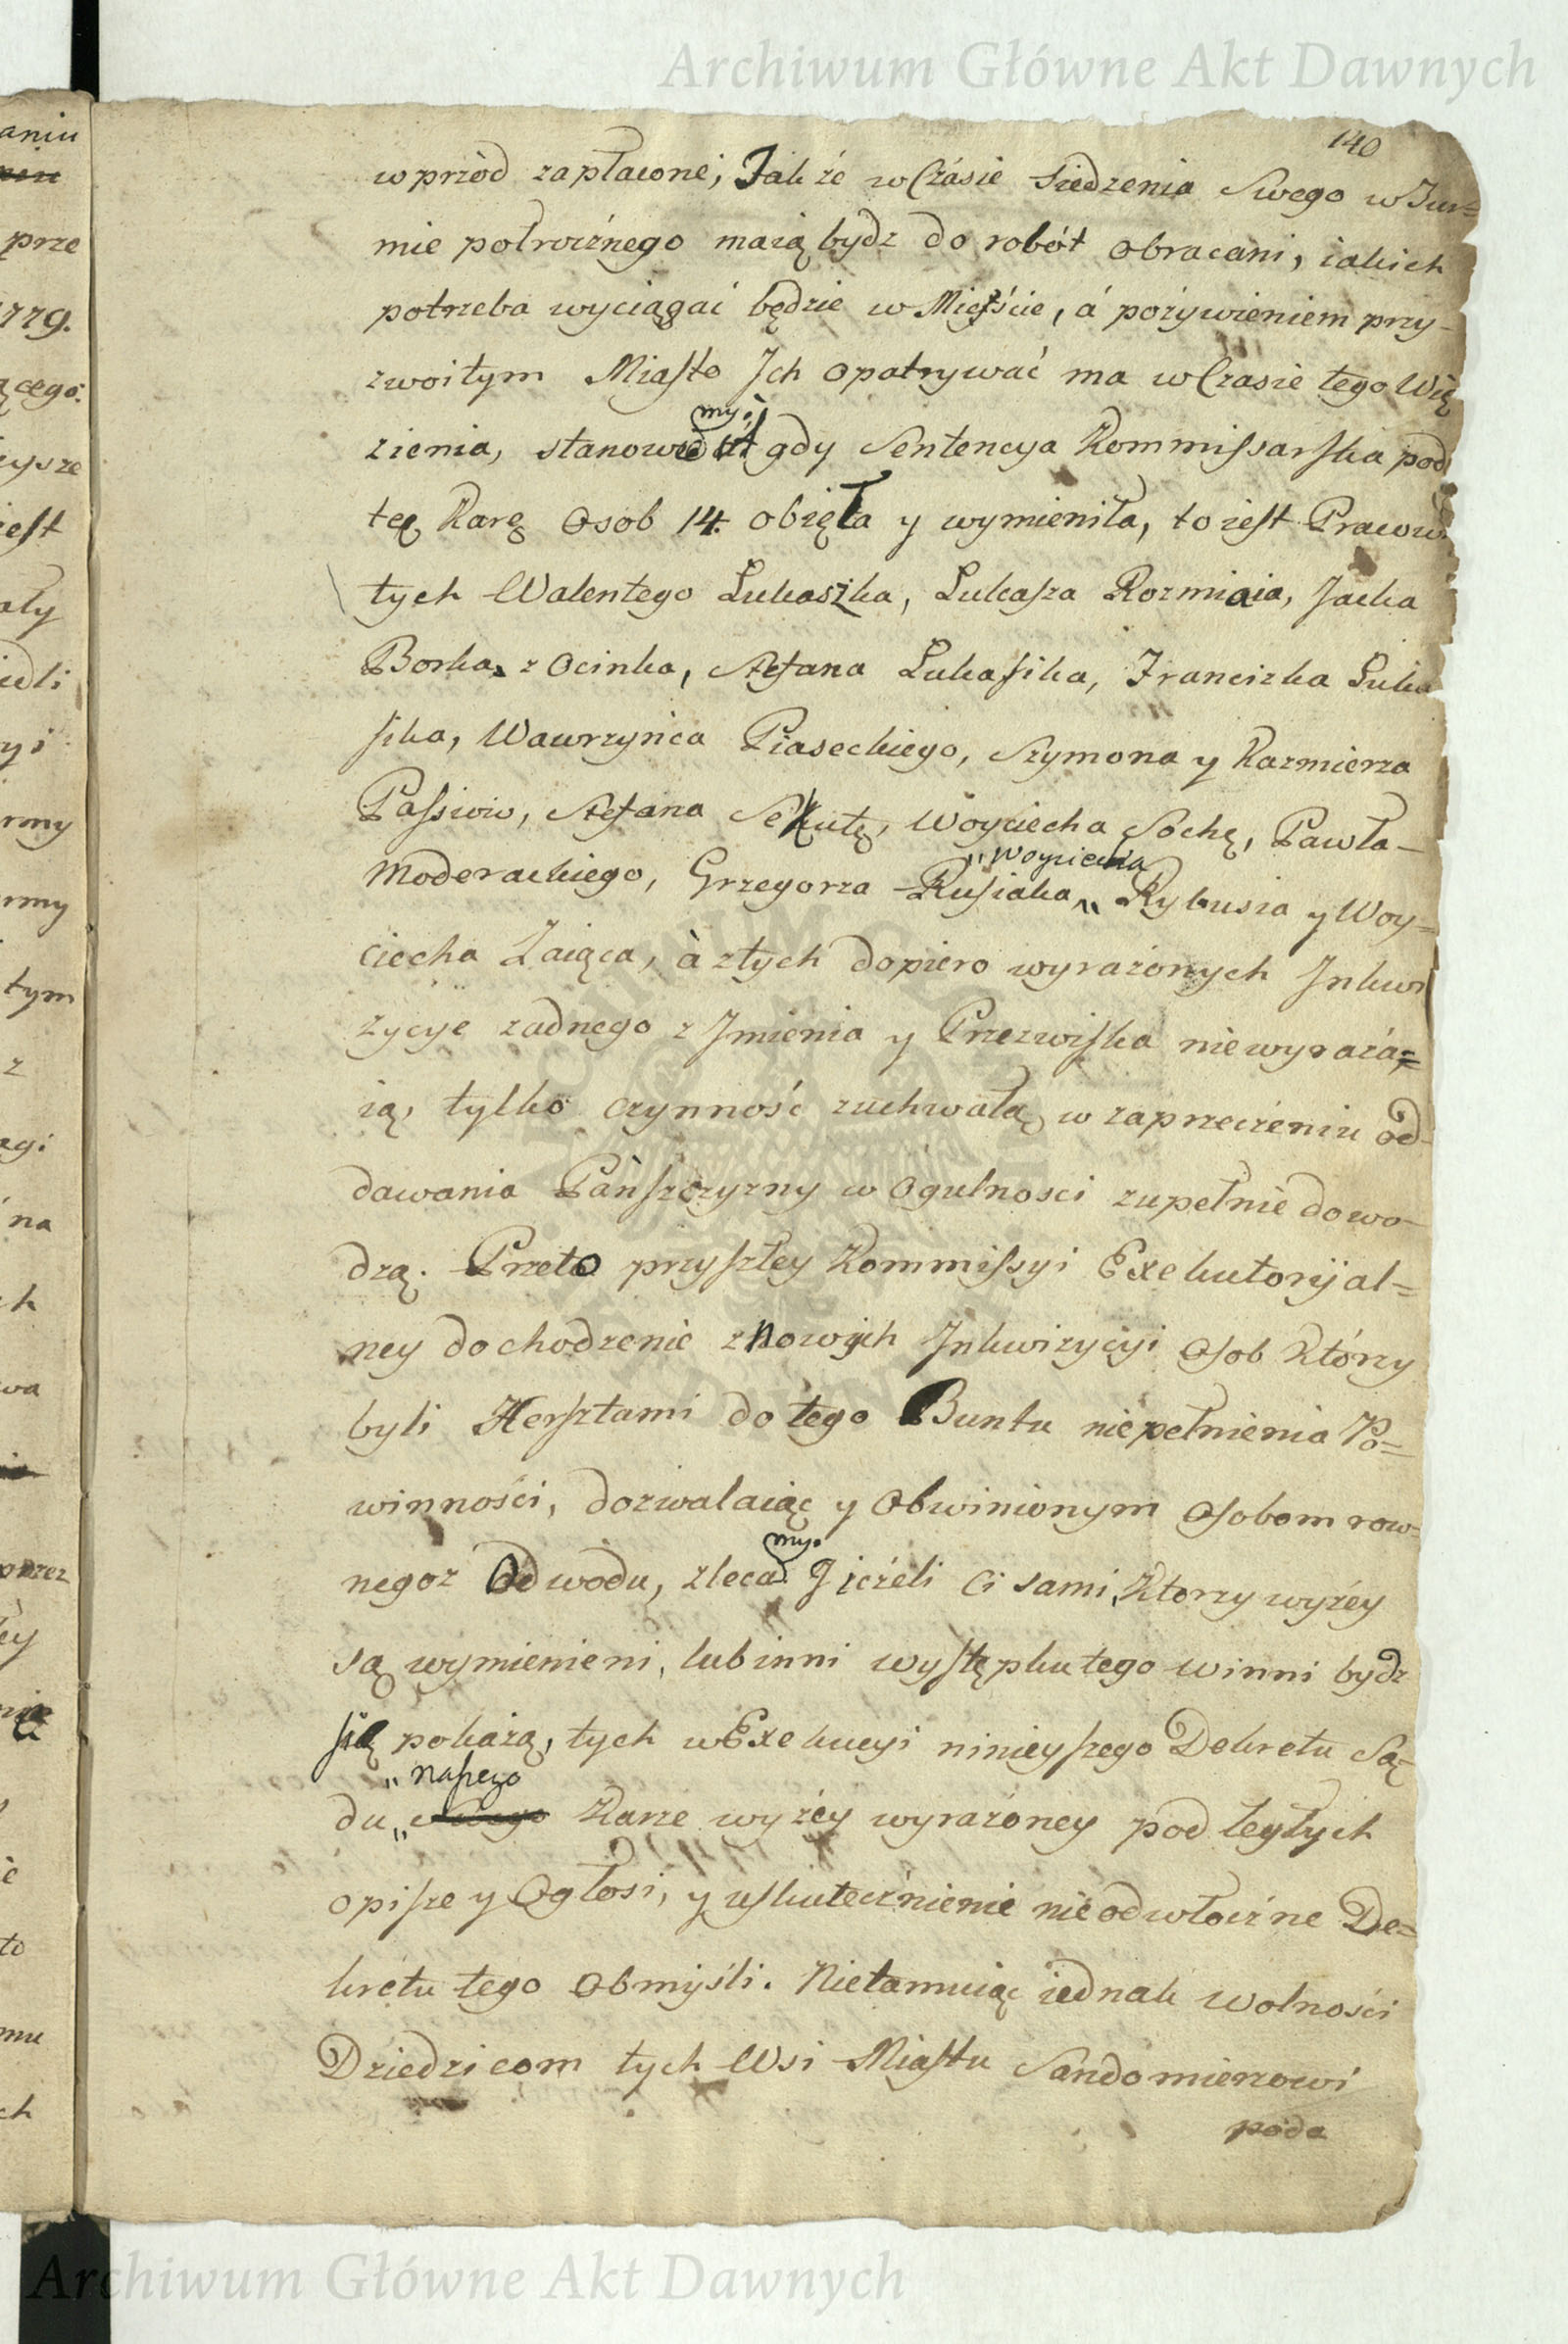 Archiwum Główne Akt Dawnych
140
wprzód zapłacone; Jak że w Czásie siedzenia Swego w Tur=
mie połrocżnego maią bydz do robót obracani, iakich
potrzeba wyciągać będzie w Mieście, á pożywieniem przy-
zwoitym Miasto Jch opatrywać ma w Czasie tego Wię
my;
zienia, stanowie gdy Sentencya Kommissarska pod
tęę Karę Osob 14. obięła y wymieniła, to iest Pracowi
tych Walentego Lukaszka, Lukasza Rozmiaia, Jacka
Borka z Ocinka, Stefana Lukasika, Franciszka Luka
sika, Wawrzyńca Piaseckiego, Szymona y Kazmierza
Passiow, Stefana Sekutę, Woyciecha Sochę, Pawła
„Woyciecha
Moderackiego, Grzegorza Rusiaka „ Rybusia y Woy=
ciecha Zaiąca, à z tych dopiero wyrażonych Jnkwi
zycye żadnego z Jmienia y Przezwiska nie wyraża=
ią, tylko czynność zuchwałą w zaprzeczeniu od-
dawania Pańszczyzny w Ogulnosci zupełnie dowo-
dzą. Przeto przyszłey Kommissyi Exekutoryial=
ney dochodzenie z Nowych Jnkwizycyi Osob którzy
byli Hersztami do tego Buntu niepełnienia Po=
winności, dozwalaiąc y Obwinionym Osobom row-
my.
negoż Odwodu, zleca J ieżeli Ci sami, ktorzy wyżey
są wymienieni, lub inni występku tego winni bydz
się pokażą, tych w Exekucyi ninieyszego Dekretu Są
„ naszego
du „ Karze wyżey wyrażoney podległych
opisze y Ogłosi, y uskutecżnienie nieodwłocżne De=
kretu tego Obmyśli. Nietamuiąc iednak wolności
Dziedzicom tych Wsi Miastu Sandomierzowi
poda
Archiwum Główne Akt Dawnych